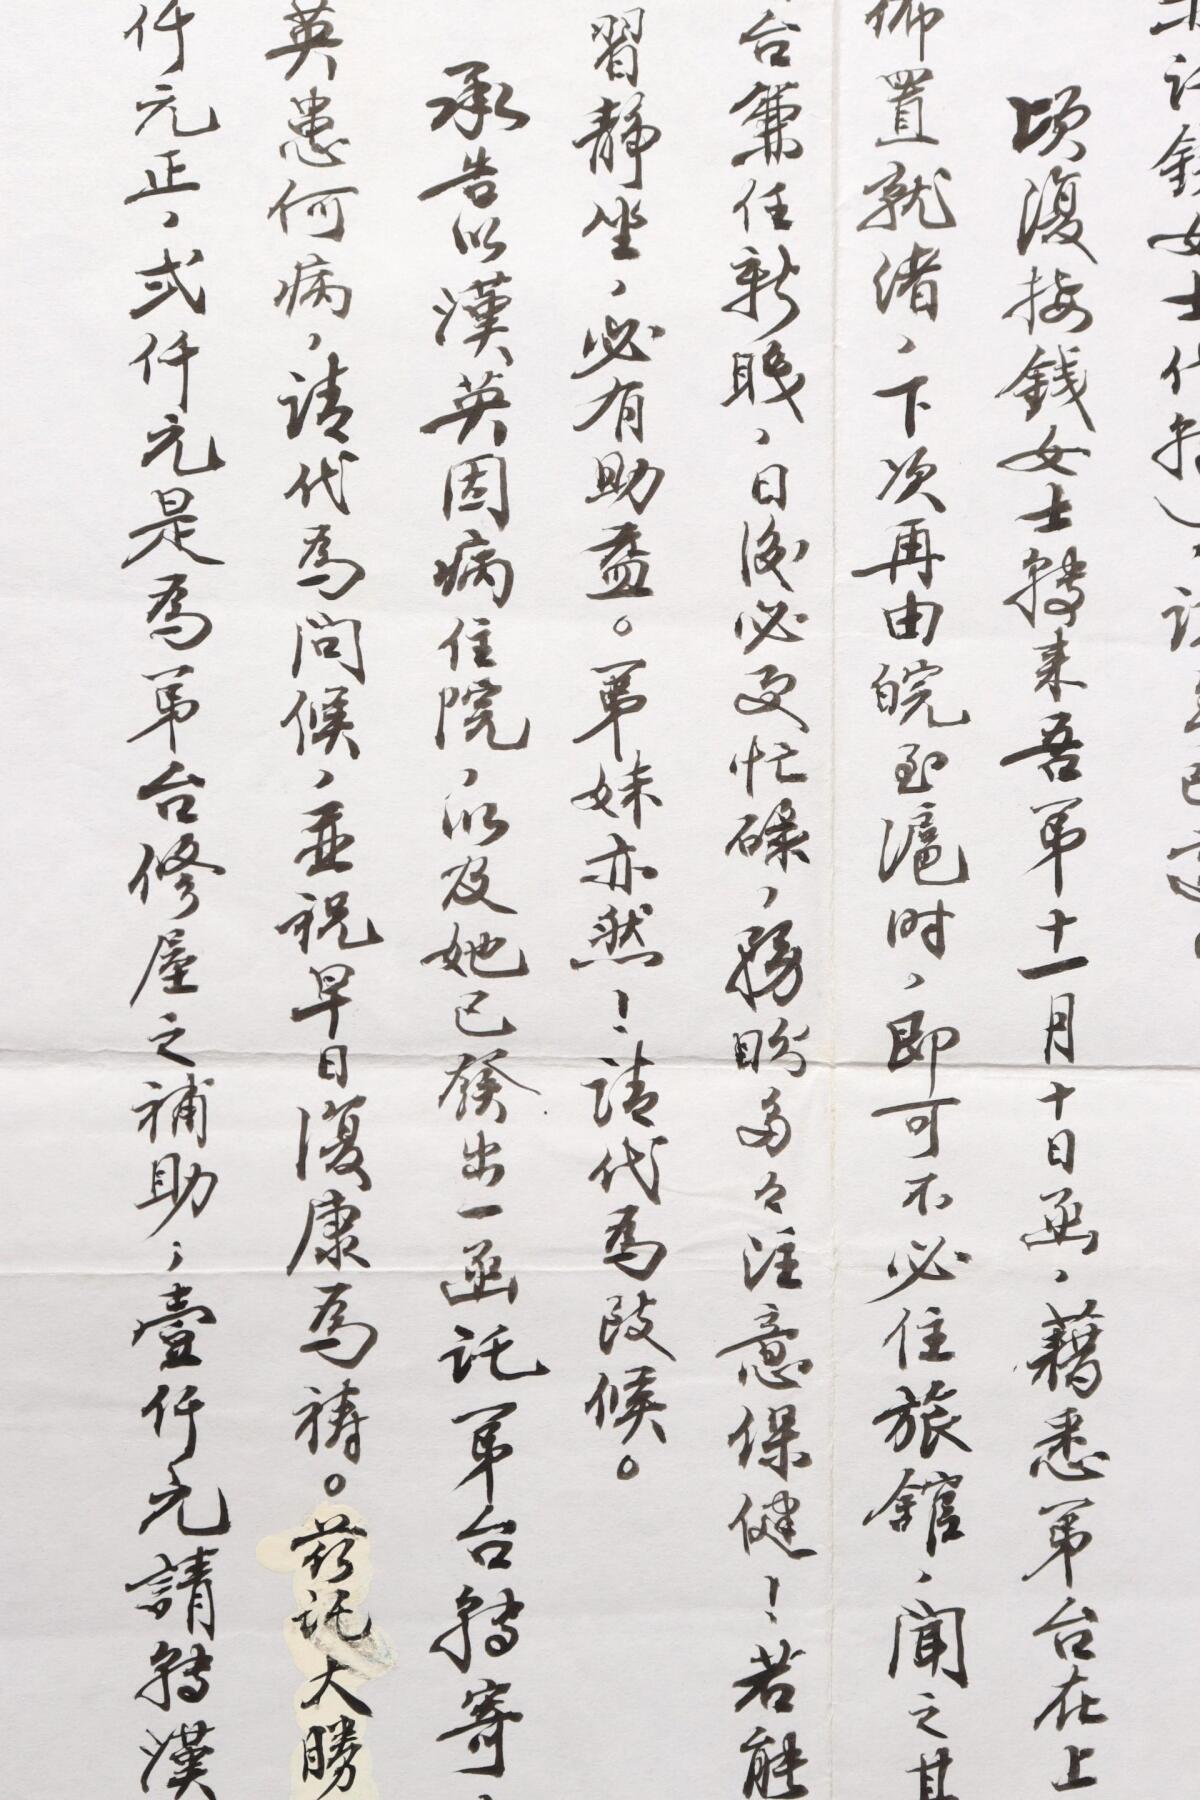 錢女士代
頃復接錢女士轉来吾弟十一月十日函，藉悉弟台在上
佈置就緒，下次再由皖至滬时，即可不必住旅館，聞之甚
台兼任新职，日後必更忙碌，務盼多々注意保健！若能
習静坐，必有助益。弟妹亦然！请代為致候。
承告以漢英因病住院，以及她已發出一函託弟台轉寄，
英患何病，请代為问候，並祝早日復康為祷。兹託大勝
仟元正，弍仟元是為弟台修屋之補助，壹仟元請轉漢